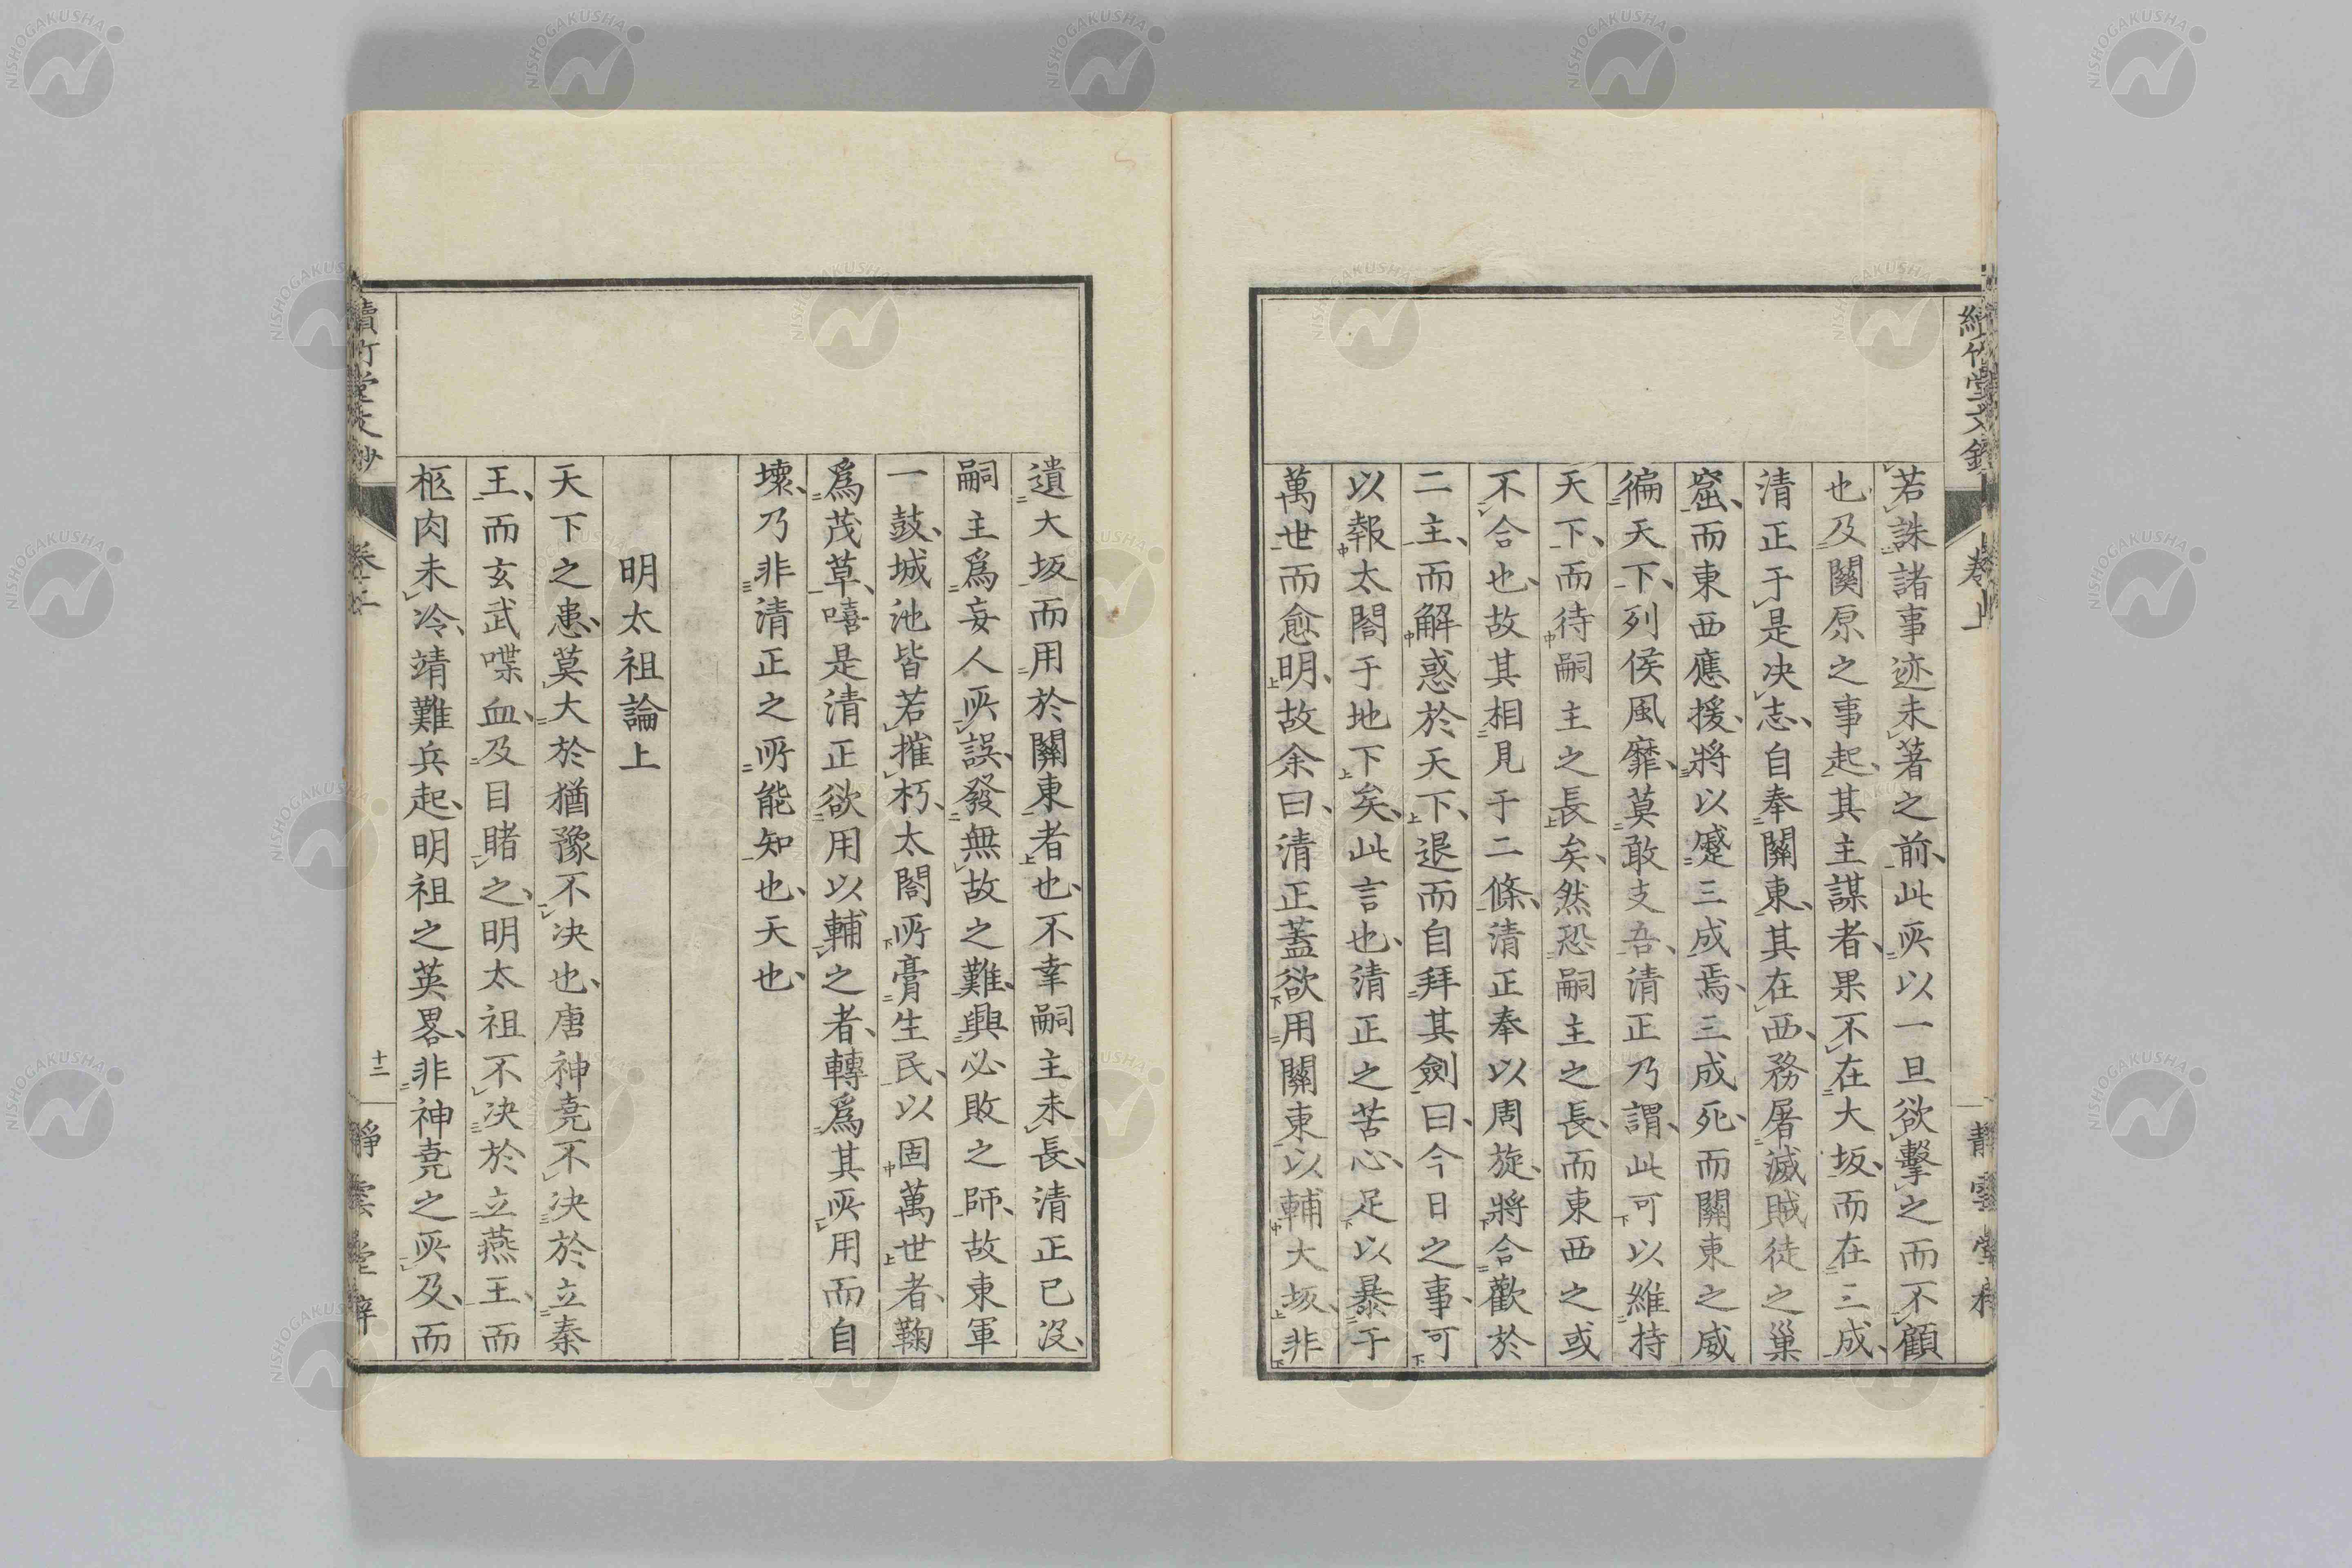 若誅諸事迹未著之前、此所以一旦欲擊之而不顧
也及關原之事起、其主謀者、果不在大坂、而在三成、
清正于是决志、自奉關東、其在西、務屠滅賊徒之巢
窟、而東西應援、將以蹙三成焉、三成死、而關東之威
徧天下、列侯風靡、莫敢支吾、清正乃謂、此可以維持
天下、而待嗣主之長矣、然恐嗣主之長、而東西之或
不合也、故其相見于二條、清正奉以周旋、將合歡於
二主、而解惑於天下、退而自拜其劍曰、今日之事、可
以報太閤于地下矣、此言也、清正之苦心、足以暴于
萬世而愈明、故余曰、清正蓋欲用關東以輔大坂、非
遺大坂而用於關東者也、不幸嗣主未長、清正已沒、
嗣主爲妄人所誤、發無故之難、興必敗之師、故東軍
一鼓、城池皆若摧朽、太閤所膏生民、以固萬世者、鞠
爲茂草、嘻是清正欲用以輔之者、轉爲其所用而自
壞、乃非清正之所能知也、天也、
明太祖論上
天下之患、莫大於猶豫不决也、唐神堯不决於立秦
王、而玄武喋血、及目睹之、明太祖不决於立燕王、而
柩肉未冷、靖難兵起、明祖之英畧、非神堯之所及、而
續竹堂文鈔
卷上
十二
靜雲堂梓